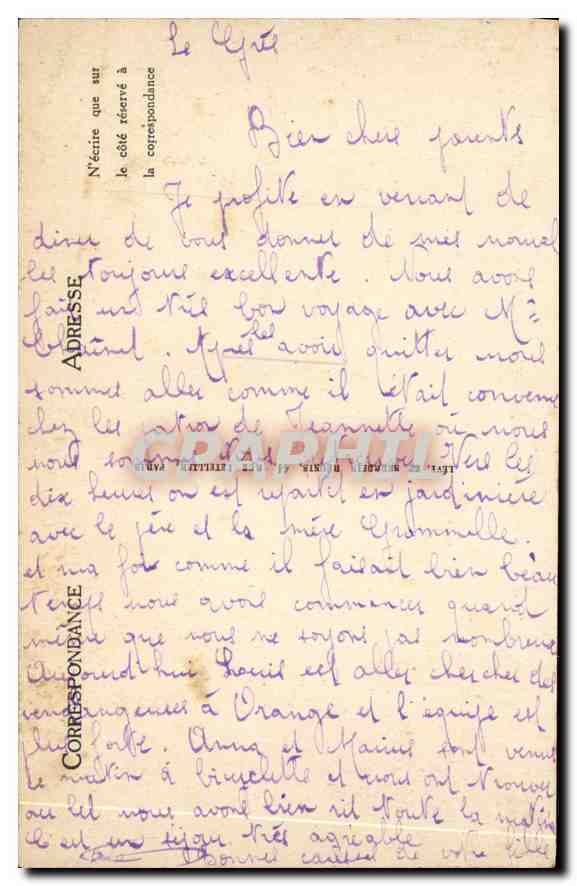 N'écrire que sur
le côté réservé à
la correspondance
ADRESSE
CORRESPONDANCE
LÉVY ET NEURDEIN RÉUNIS, 44, RUE LETELLIER, PARIS
CPAPHIL
Le Grés
Bien chers parents
Je profite en venant de
diner de vous donner de mes nouvel
les toujours excellente. Nous avons
fait un très bon voyage avec Mr
Après les avoir quitter nous
sommes aller comme il était convenu
chez les de Jeannette où nous
nous sommes Vers les
dix heures on est repartit en jardinière
avec le père et la mère
et ma foi comme il faisait bien beau
temps nous avons commencer quand
même que nous ne soyons pas nombreux
Aujourd'hui Louis est aller chercher des
vendangeuses à Orange et l'équipe est
plus forte. Anna et Marius sont venus
le matin à bicyclette et nous ont trouver
au lit nous avons bien rit toute la matinée
C'est un séjour très agréable
Bonnes caresses de votre fille